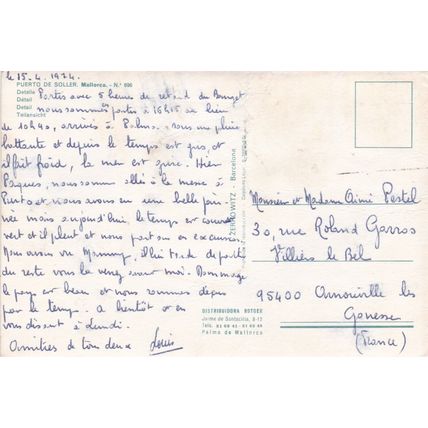 le 15.4.1974.
PUERTO DE SOLLER. Mallorca. - N.º 696
Detalle
Detail
Detail
Teilansicht
Partis avec 5 heures de retard du Bourget
nous sommes partis à 16h15 au lieu
de 10h40, arrivés à Palma sous une pluie
battante et depuis le temps est gris, et
il fait froid, la mer est grise. Hier
Pâques, nous sommes allés à la messe à
et nous avons eu une belle jour-
née mais aujourd'hui, le temps est couvert
et il pleut et nous partons en excursion.
Nous avons vu Mammy, il lui tarde de partir
du reste vous la verrez avant moi. Dommage
le pays est beau et nous sommes déçus
par le temps. A bientôt on en
vous dissent à Lundi.
Amitiés de tous deux Louis
ZERKOWITZ - Barcelona
DISTRIBUIDORA ROTGER
Jaime de Santacilia, 8-12
Palma de Mallorca
Monsieur et Madame Aimé Postel
30, rue Roland Garros
Villiers le Bel
95400 Arnouville les
Gonesse
(France)